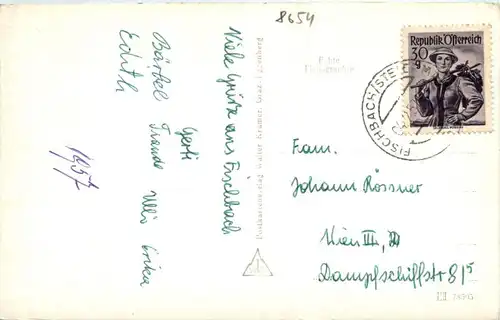 8654
Viele Grüße aus Fischbach
Gerti
Bärbel Traude Ulli Erika
Edith
1957
Echte
Fotografie
Postkartenverlag Walter Kramer, Graz
Republik Österreich
30
g
FISCHBACH (STE
Fam.
Johann Rössner
Wien III,
Dampfschiffstr 8/5